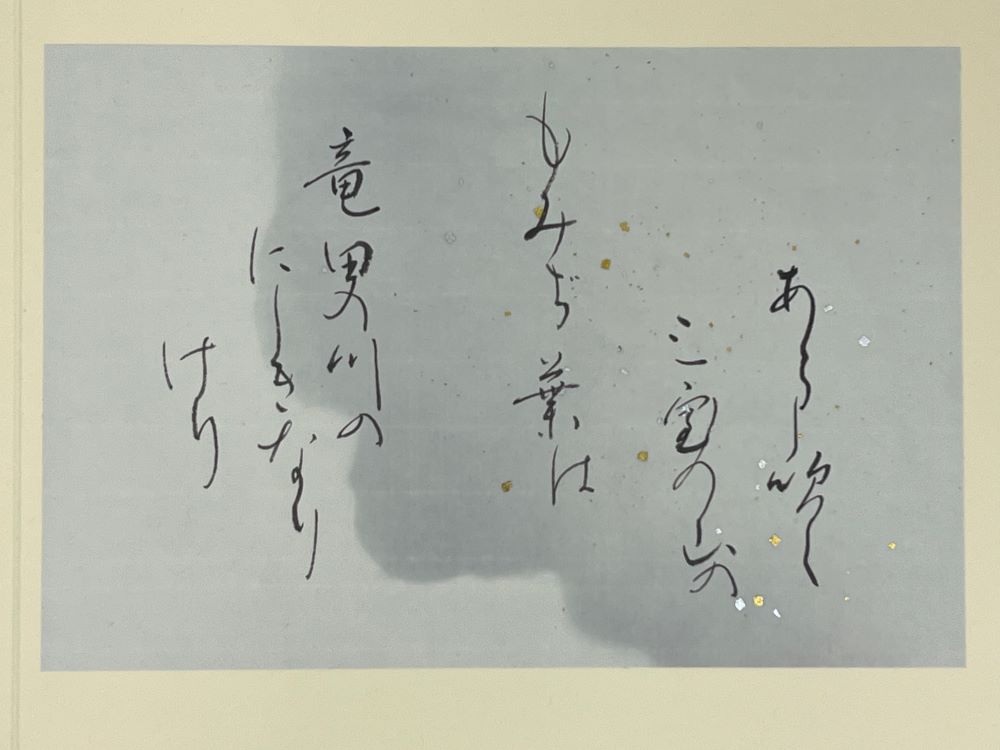 あらし吹く
三室の山の
もみぢ葉は
竜田の川の
にしきなり
けり